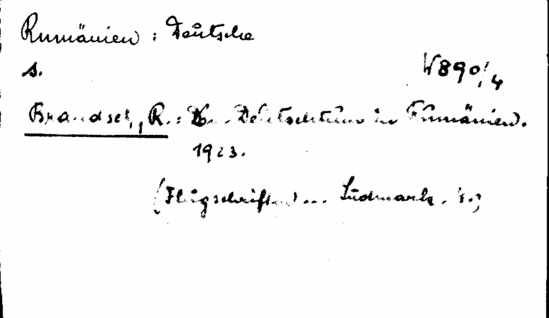 Rumänien : Deutsche
s. W890/4
Brandsch, R.: Das Deutschtum in Rumänien.
1923.
(Flugschriften ... Südmark.